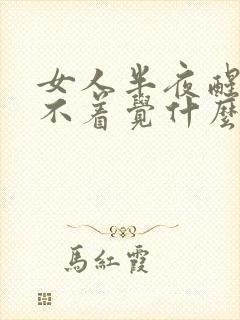 女人半夜醒
不着覺什麼
馬紅霞